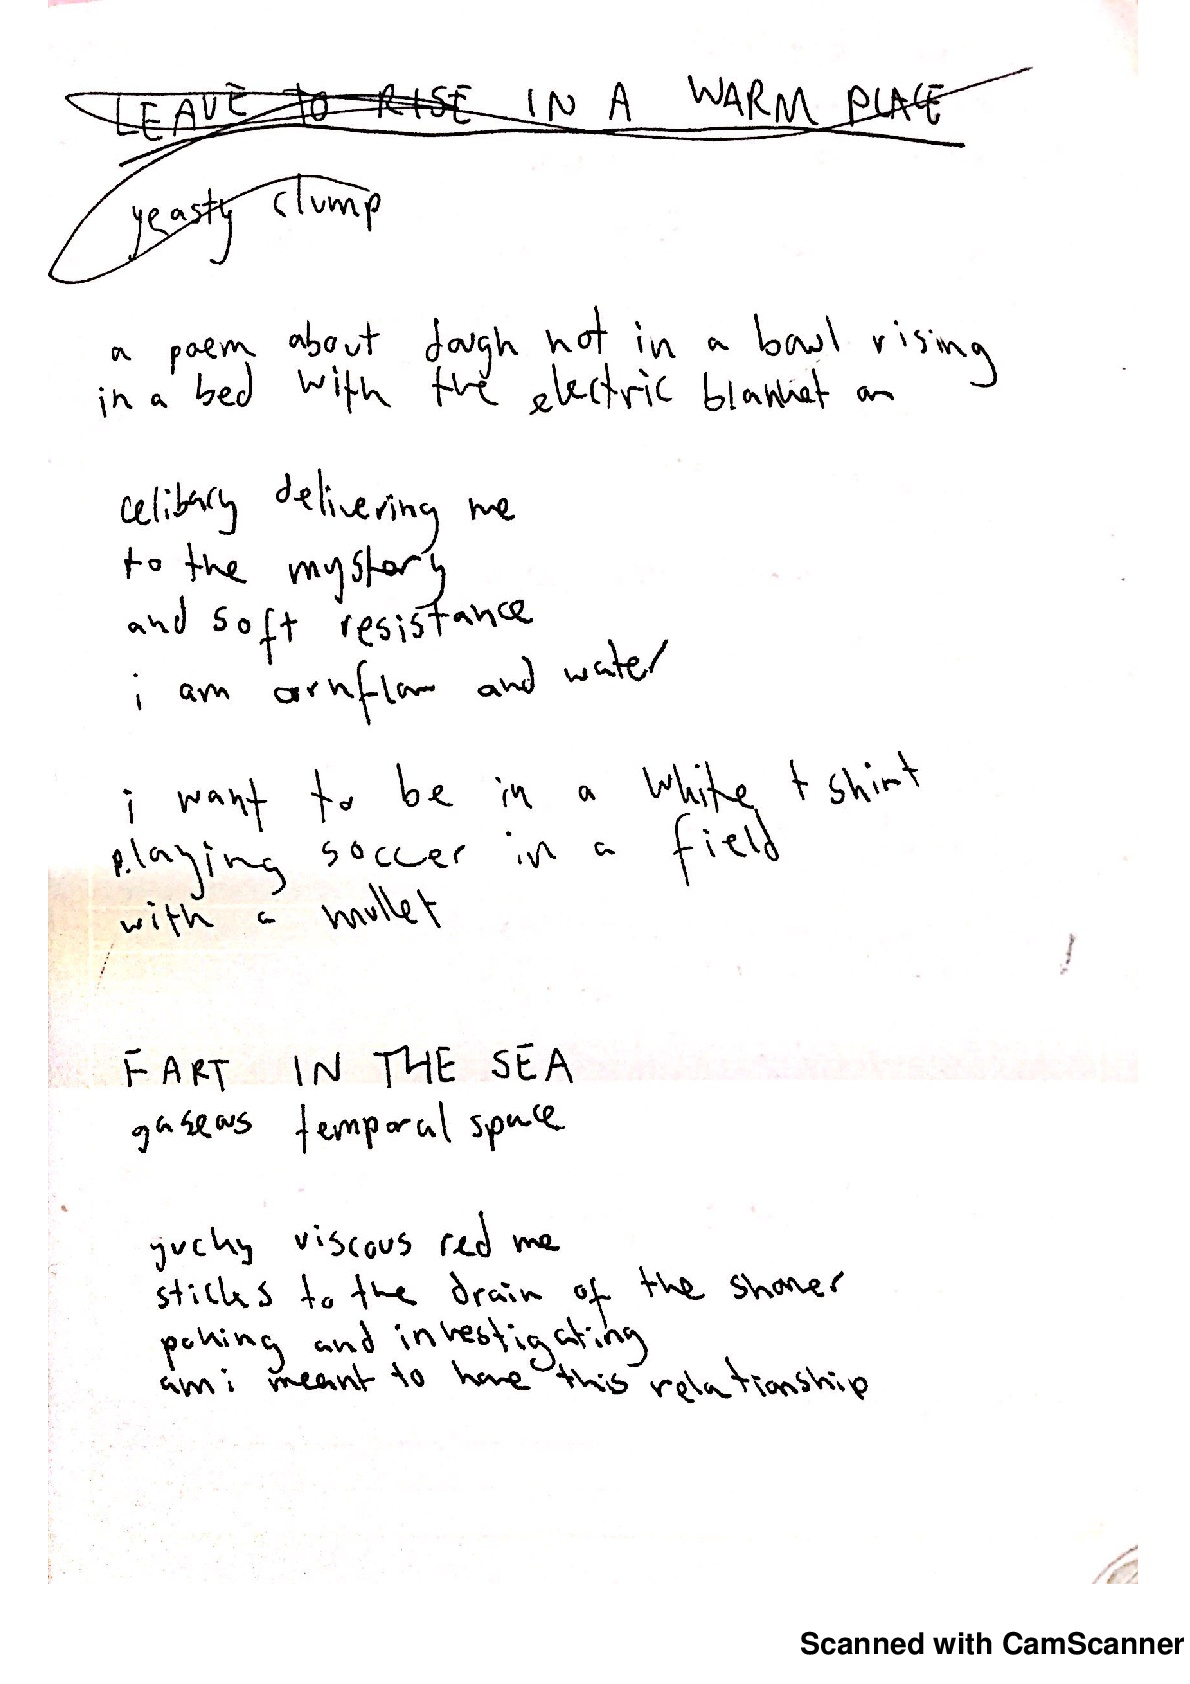 LEAVE TO RISE IN A WARM PLACE
yeasty clump
a poem about dough not in a bowl rising
in a bed with the electric blanket on
celibacy delivering me
to the mystery
and soft resistance
i am cornflour and water
i want to be in a white t shirt
playing soccer in a field
with a mullet
FART IN THE SEA
gaseous temporal space
yucky viscous red me
sticks to the drain of the shower
poking and investigating
am i meant to have this relationship
Scanned with CamScanner